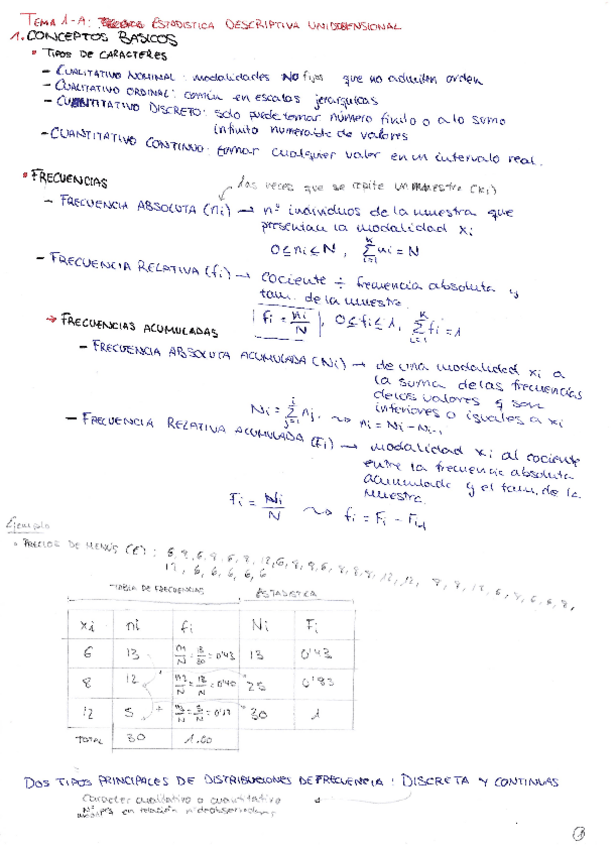 TEMA 1-A: ESTADISTICA DESCRIPTIVA UNIDIMENSIONAL
1. CONCEPTOS BASICOS
• TIPOS DE CARACTERES
- CUALITATIVO NOMINAL: modalidades NO fijas que no admiten orden
- CUALITATIVO ORDINAL: común en escalas jerarquicas
- CUANTITATIVO DISCRETO: solo puede tomar número finito o a lo sumo
infinito numerable de valores
- CUANTITATIVO CONTINUO: tomar cualquier valor en un intervalo real.
• FRECUENCIAS
las veces que se repite un muestra (xi)
- FRECUENCIA ABSOLUTA (ni) → nº individuos de la muestra que
presentan la modalidad xi
0≤ni≤N, Σ ni = N
- FRECUENCIA RELATIVA (fi) → cociente ÷ frecuencia absoluta y
tam. de la muestra.
fi = ni/N, 0≤fi≤1, Σ fi = 1
→ FRECUENCIAS ACUMULADAS
- FRECUENCIA ABSOLUTA ACUMULADA (Ni) → de una modalidad xi a
la suma de las frecuencias
de los valores q son
inferiores o iguales a xi
Ni = Σ nj. ⇝ ni = Ni - Ni-1
- FRECUENCIA RELATIVA ACUMULADA (Fi) → modalidad xi al cociente
entre la frecuencia absoluta
acumulada y el tam. de la
muestra.
Fi = Ni/N ⇝ fi = Fi - Fi-1
Ejemplo
• PRECIOS DE MENÚS (€):
12, 6, 6, 6, 6, 6
TABLA DE FRECUENCIAS ESTADISTICA
xi ni fi Ni Fi
6 13 n1/N = 13/30 = 0'43 13 0'43
8 12 n2/N = 12/30 = 0'40 25 0'83
12 5 n3/N = 5/30 = 0'17 30 1
TOTAL 30 1.00
DOS TIPOS PRINCIPALES DE DISTRIBUCIONES DE FRECUENCIA: DISCRETA Y CONTINUAS
Caracter cualitativo o cuantitativo
en relación nº de observaciones
1